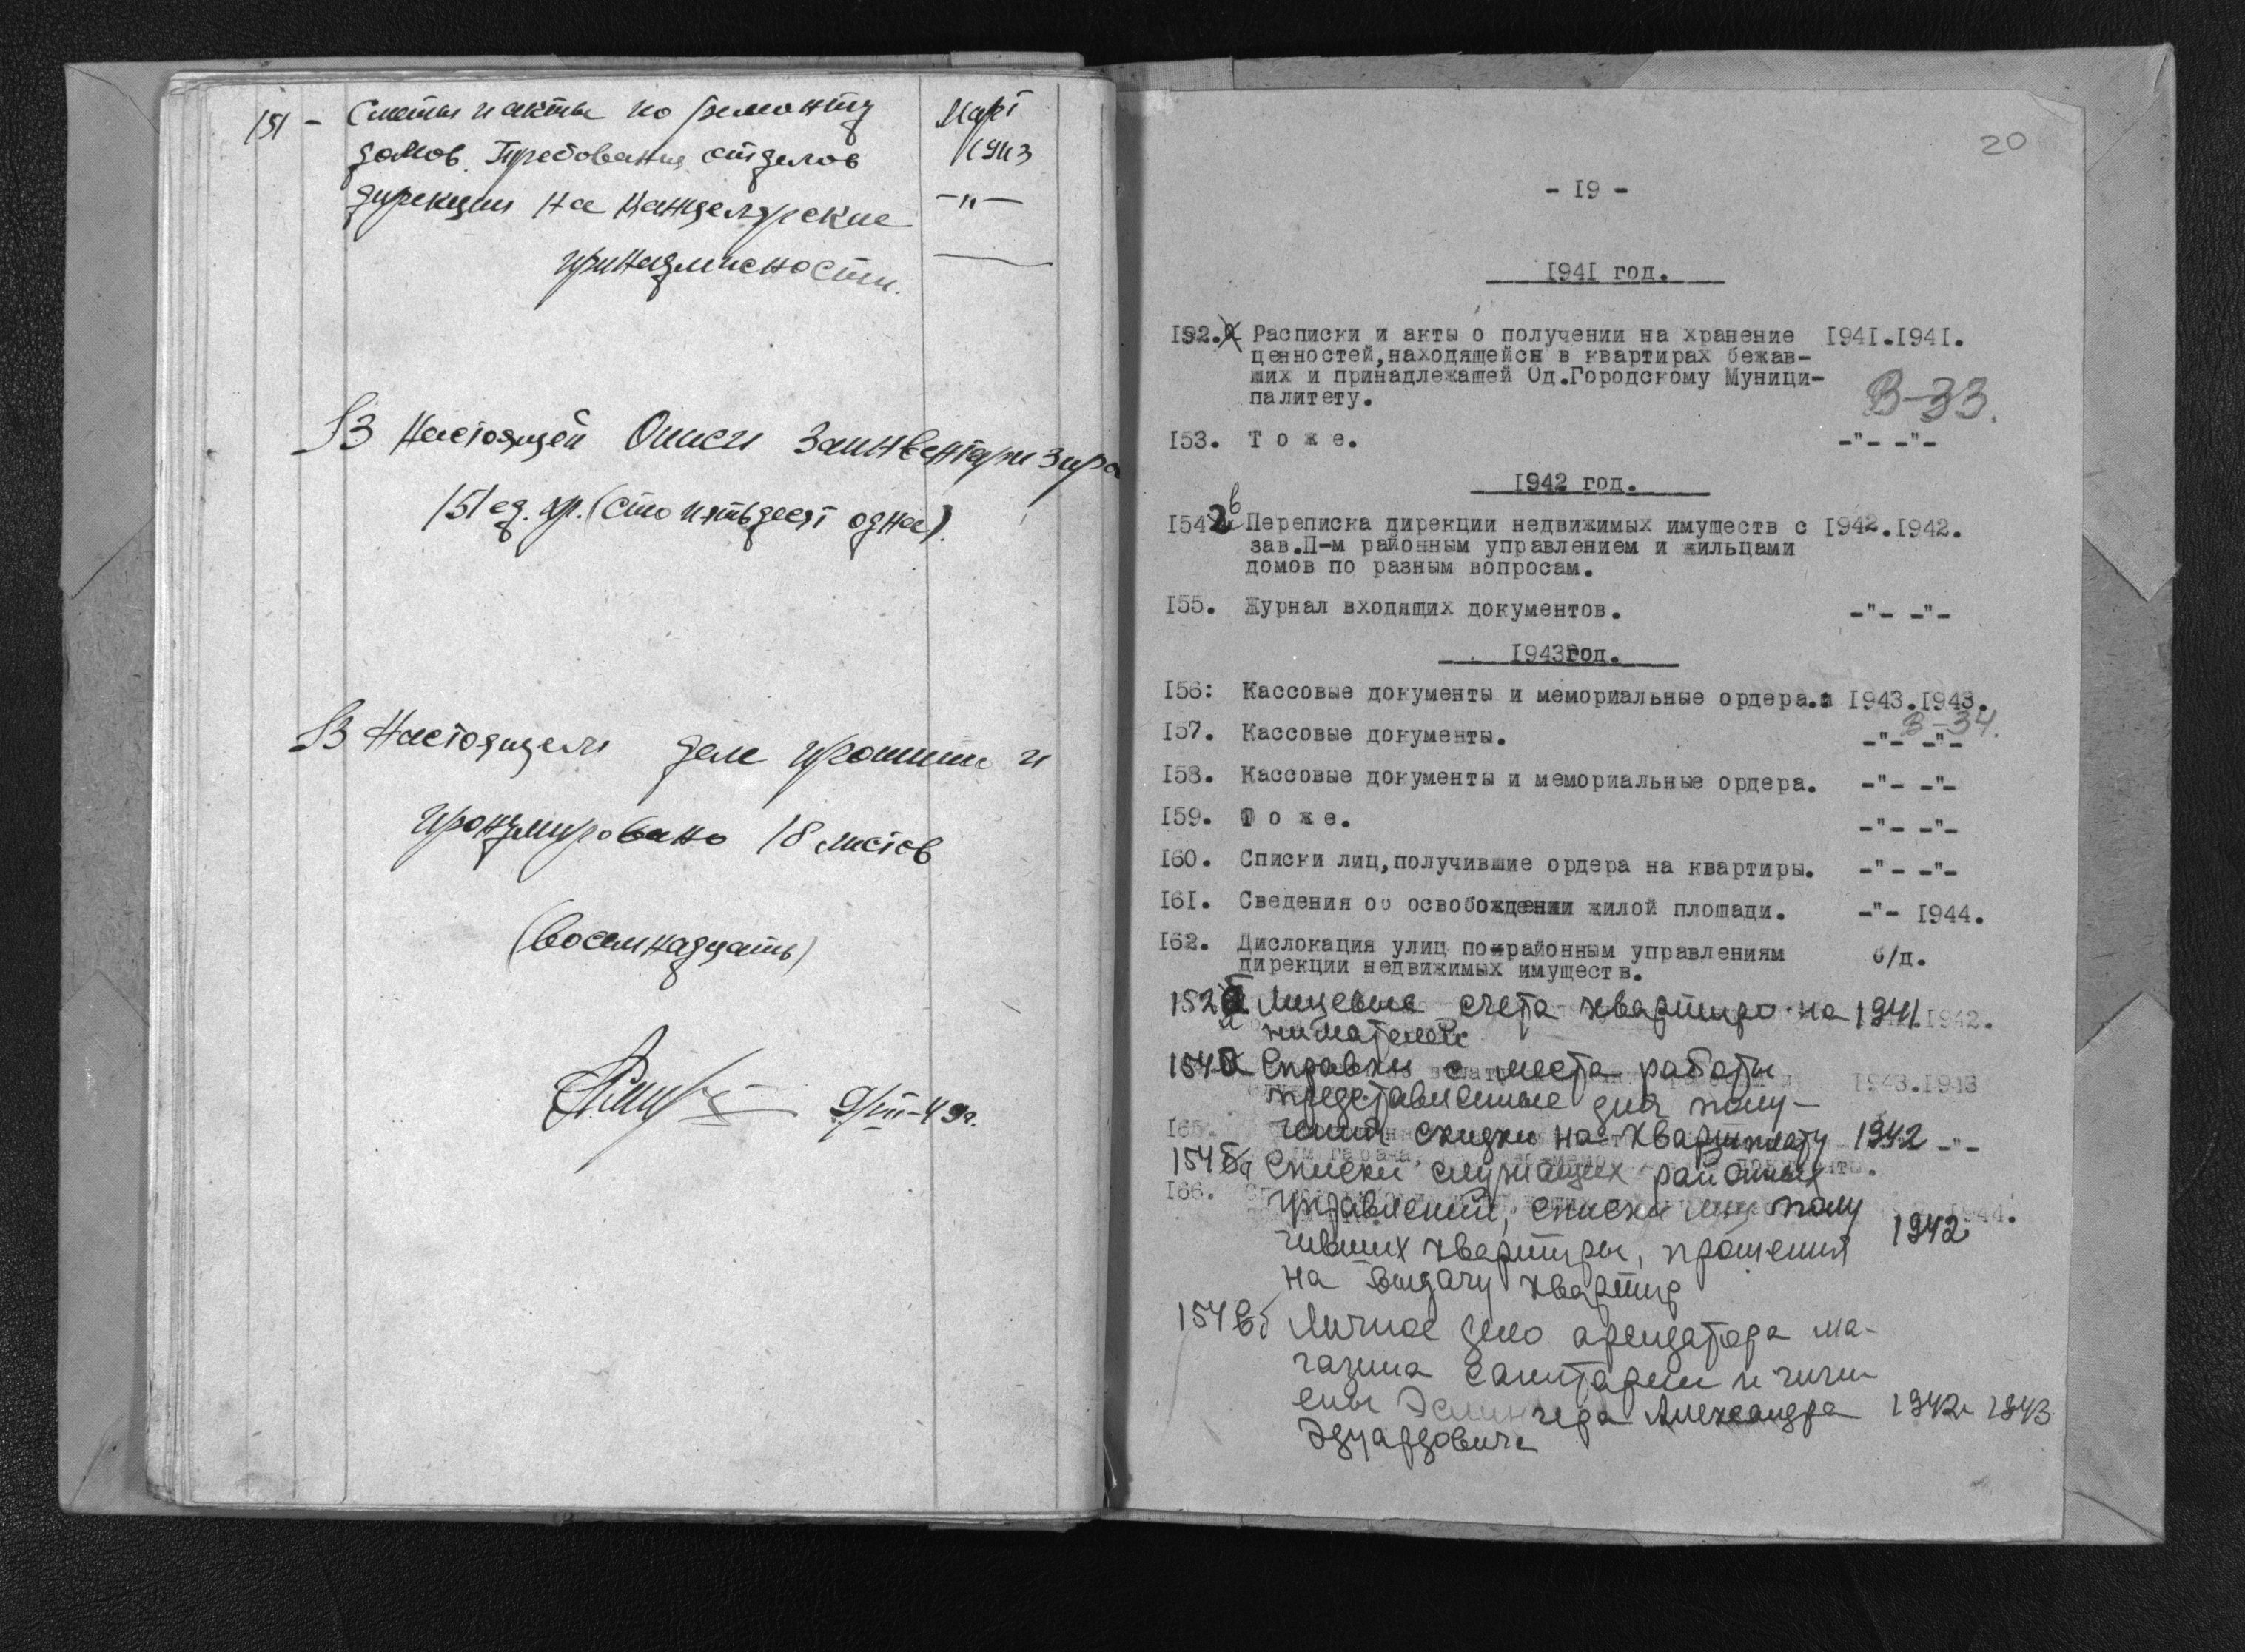 151 - Сметы и акты по ремонту Март
домов. Требования отделов 1943
дирекции на канцелярские -"-
принадлежности.
В настоящей описи заинвентаризиро
151 ед. хр. (сто пятьдесят одна).
В настоящем деле прошито и
пронумеровано 18 листов
(восемнадцать)
9/VIII-49г.
20
- 19 -
1941 год.
152. Расписки и акты о получении на хранение 1941.1941.
ценностей,находящейся в квартирах бежав-
ших и принадлежащей Од.Городскому Муници-
палитету.
В-33.
153. Т о ж е. -"- -"-
1942 год.
154 в Переписка дирекции недвижимых имуществ с 1942.1942.
зав.П-м районным управлением и жильцами
домов по разным вопросам.
155. Журнал входящих документов. -"- -"-
1943 год.
156: Кассовые документы и мемориальные ордера. 1943.1943.
В-34.
157. Кассовые документы. -"- -"-
158. Кассовые документы и мемориальные ордера. -"- -"-
159. Т о ж е. -"- -"-
160. Списки лиц,получившие ордера на квартиры. -"- -"-
161. Сведения об освобождении жилой площади. -"- 1944.
162. Дислокация улиц по районным управлениям б/д.
дирекции недвижимых имуществ.
152 а Лицевые счета квартиро-на 1941.1942.
нимателей
154 а Справки с места работы 1943.1943
представленные для полу-
165. чения скидки на квартплату 1942 -"-
154 ба Списки служащих районных
166. управлений, списки лиц полу 1944.
чивших квартиры, прошения 1942
на выдачу квартир
154 вб Личное дело арендатора ма-
газина санитарии и гиги
ены Эслингера Александра 1942 1943
Эдуардовича